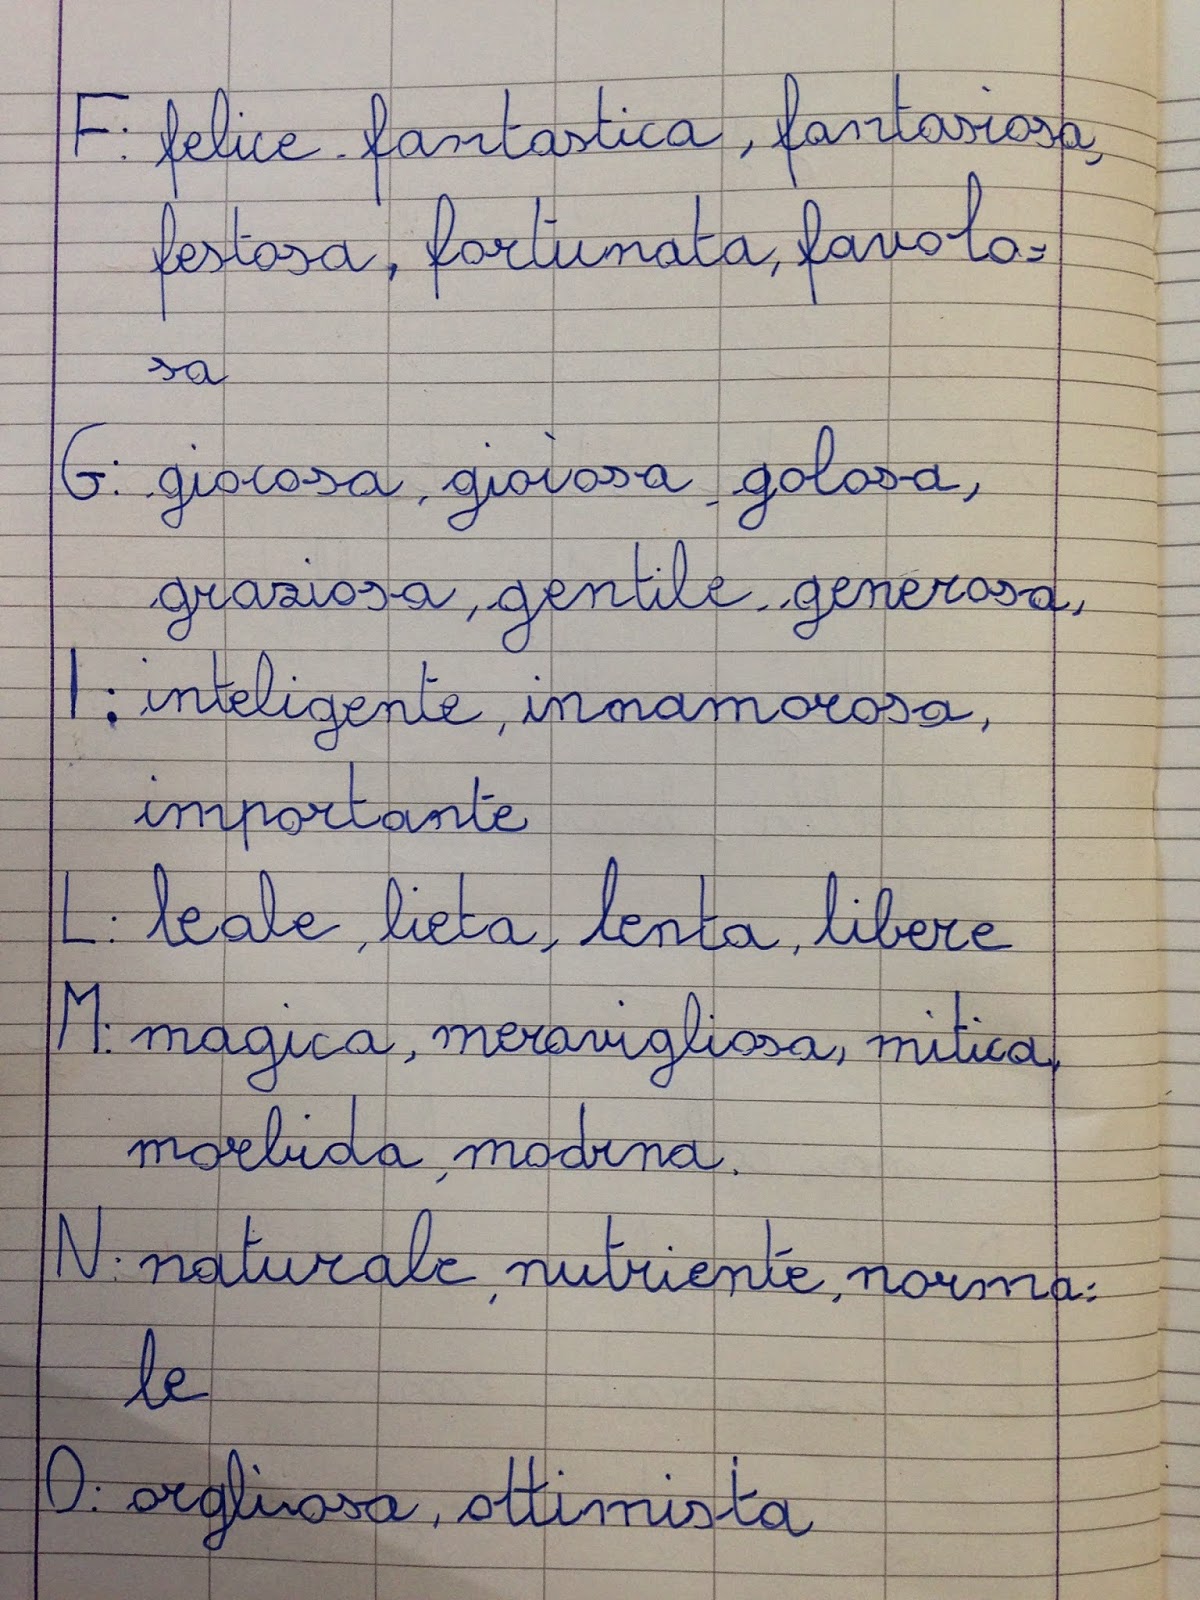 F: felice, fantastica, fantasiosa,
festosa, fortunata, favolo=
sa
G: giocosa, gioiosa, golosa,
graziosa, gentile, generosa,
I: inteligente, innamorosa,
importante
L: leale, lieta, lenta, libere
M: magica, meravigliosa, mitica,
morbida, modrna.
N: naturale, nutriente, norma=
le
O: orgliosa, ottimista